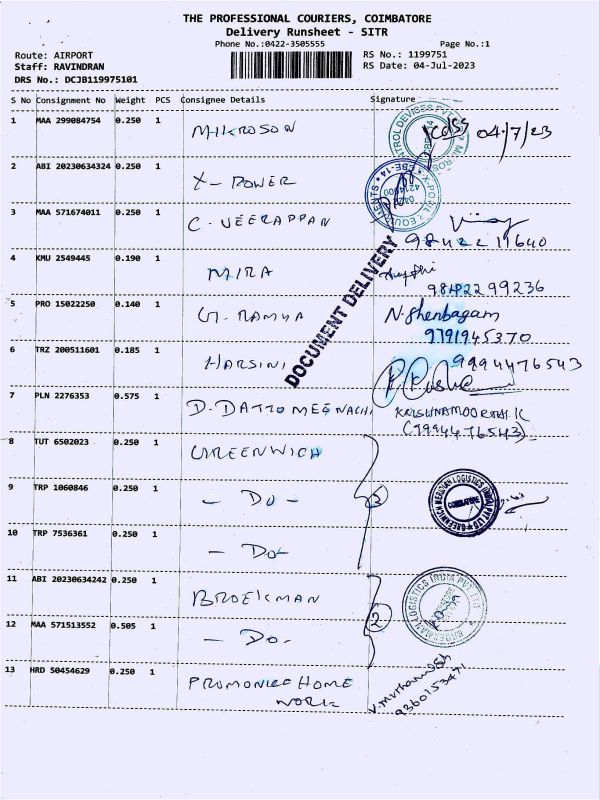 THE PROFESSIONAL COURIERS, COIMBATORE
Delivery Runsheet - SITR
Phone No.:0422-3505555 Page No.:1
Route: AIRPORT RS No.: 1199751
Staff: RAVINDRAN RS Date: 04-Jul-2023
DRS No.: DCJB119975101
S No Consignment No Weight PCS Consignee Details Signature
1 MAA 299084754 0.250 1 MIKROSON 04/7/23
2 ABI 20230634324 0.250 1 X-POWER
3 MAA 571674011 0.250 1 C. VEERAPPAN
98422 11640
4 KMU 2549445 0.190 1 MIRA
98422 99236
5 PRO 15022250 0.140 1 G. RAMYA N. Shenbagam
9791945370
6 TRZ 200511601 0.185 1 HARSINI 9994476543
7 PLN 2276353 0.575 1 D. DATTO MEENACHI KRISHNAMOORTHI.K
(9994476543)
8 TUT 6502023 0.250 1 GREENWICH
9 TRP 1060846 0.250 1 - DO - 3
10 TRP 7536361 0.250 1 - DO -
11 ABI 20230634242 0.250 1 BROEKMAN
12 MAA 571513552 0.505 1 - DO - 2
13 HRD 50454629 0.250 1 HOME
WORK
9360153471
DOCUMENT DELIVERY
GREENWICH MERIDIAN LOGISTICS (INDIA) PVT LTD
COIMBATORE
LOGISTICS INDIA PVT. LTD.